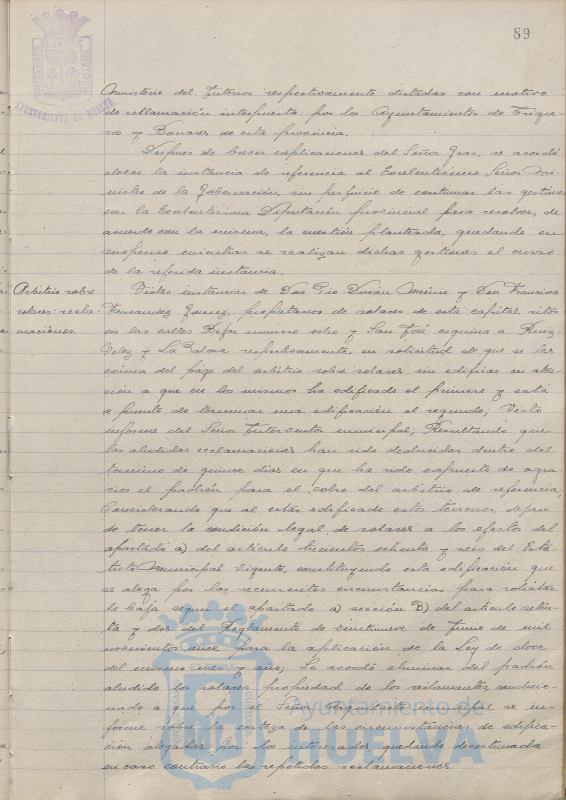 89
Ministerio del Interior respectivamente dictadas con motivo
de reclamación interpuesta por los Ayuntamientos de Trigue-
ros y Bonares de esta provincia.
Despues de breves explicaciones del Señor Gras, se acordó
elevar la instancia de referencia al Excelentísimo Señor Mi-
nistro de la Gobernación, sin perjuicio de continuar las gestiones
con la Excelentísima Diputación provincial para resolver, de
acuerdo con la misma, la cuestión planteada, quedando en
suspenso mientras se realizan dichas gestiones el curso
de la referida instancia.
Arbitrio sobre
solares: recla-
maciones.
Vistas instancias de Don Pio Durán Merino y Don Francisco
Fernandez Gomez, propietarios de solares de esta capital sitos
en las calles Rejar numero ocho y San José esquina a Ruiz
Velez y La Palma respectivamente, en solicitud de que se les
exima del pago del arbitrio sobre solares sin edificar en aten-
ción a que en los mismos ha edificado el primero y está
a punto de terminar una edificación el segundo; Visto
informe del Señor Interventor municipal; Resultando que
las aludidas reclamaciones han sido deducidas dentro del
termino de quince dias en que ha sido expuesto de agra-
vios el padrón para el cobro del arbitrio de referencia;
Considerando que al estar edificado estos terrenos, dejan
de tener la condición legal de solares a los efectos del
apartado a) del articulo trescientos ochenta y seis del Esta-
tuto Municipal vigente, constituyendo esta edificación que
se alega por los recurrentes circunstancias para solicitar
la baja segun el apartado a) sección B) del articulo seten-
ta y dos del Reglamento de veintinueve de Junio de mil
novecientos once para la aplicación de la Ley de doce
del mismo mes y año; Se acordó eliminar del padrón
aludido los solares propiedad de los reclamantes, condicio-
nado a que por el Señor Arquitecto municipal se in-
forme sobre la certeza de las circunstancias de edifica-
ción alegadas por los interesados, quedando desestimada
en caso contrario las repetidas reclamaciones.
Ayuntamiento de
HUELVA